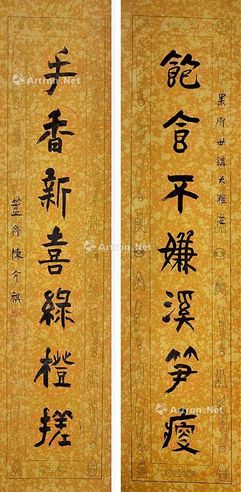 果所世講大雅正
飽食不嫌溪笋瘦
手香新喜綠橙搓
簠齋陳介祺
Artron.Net